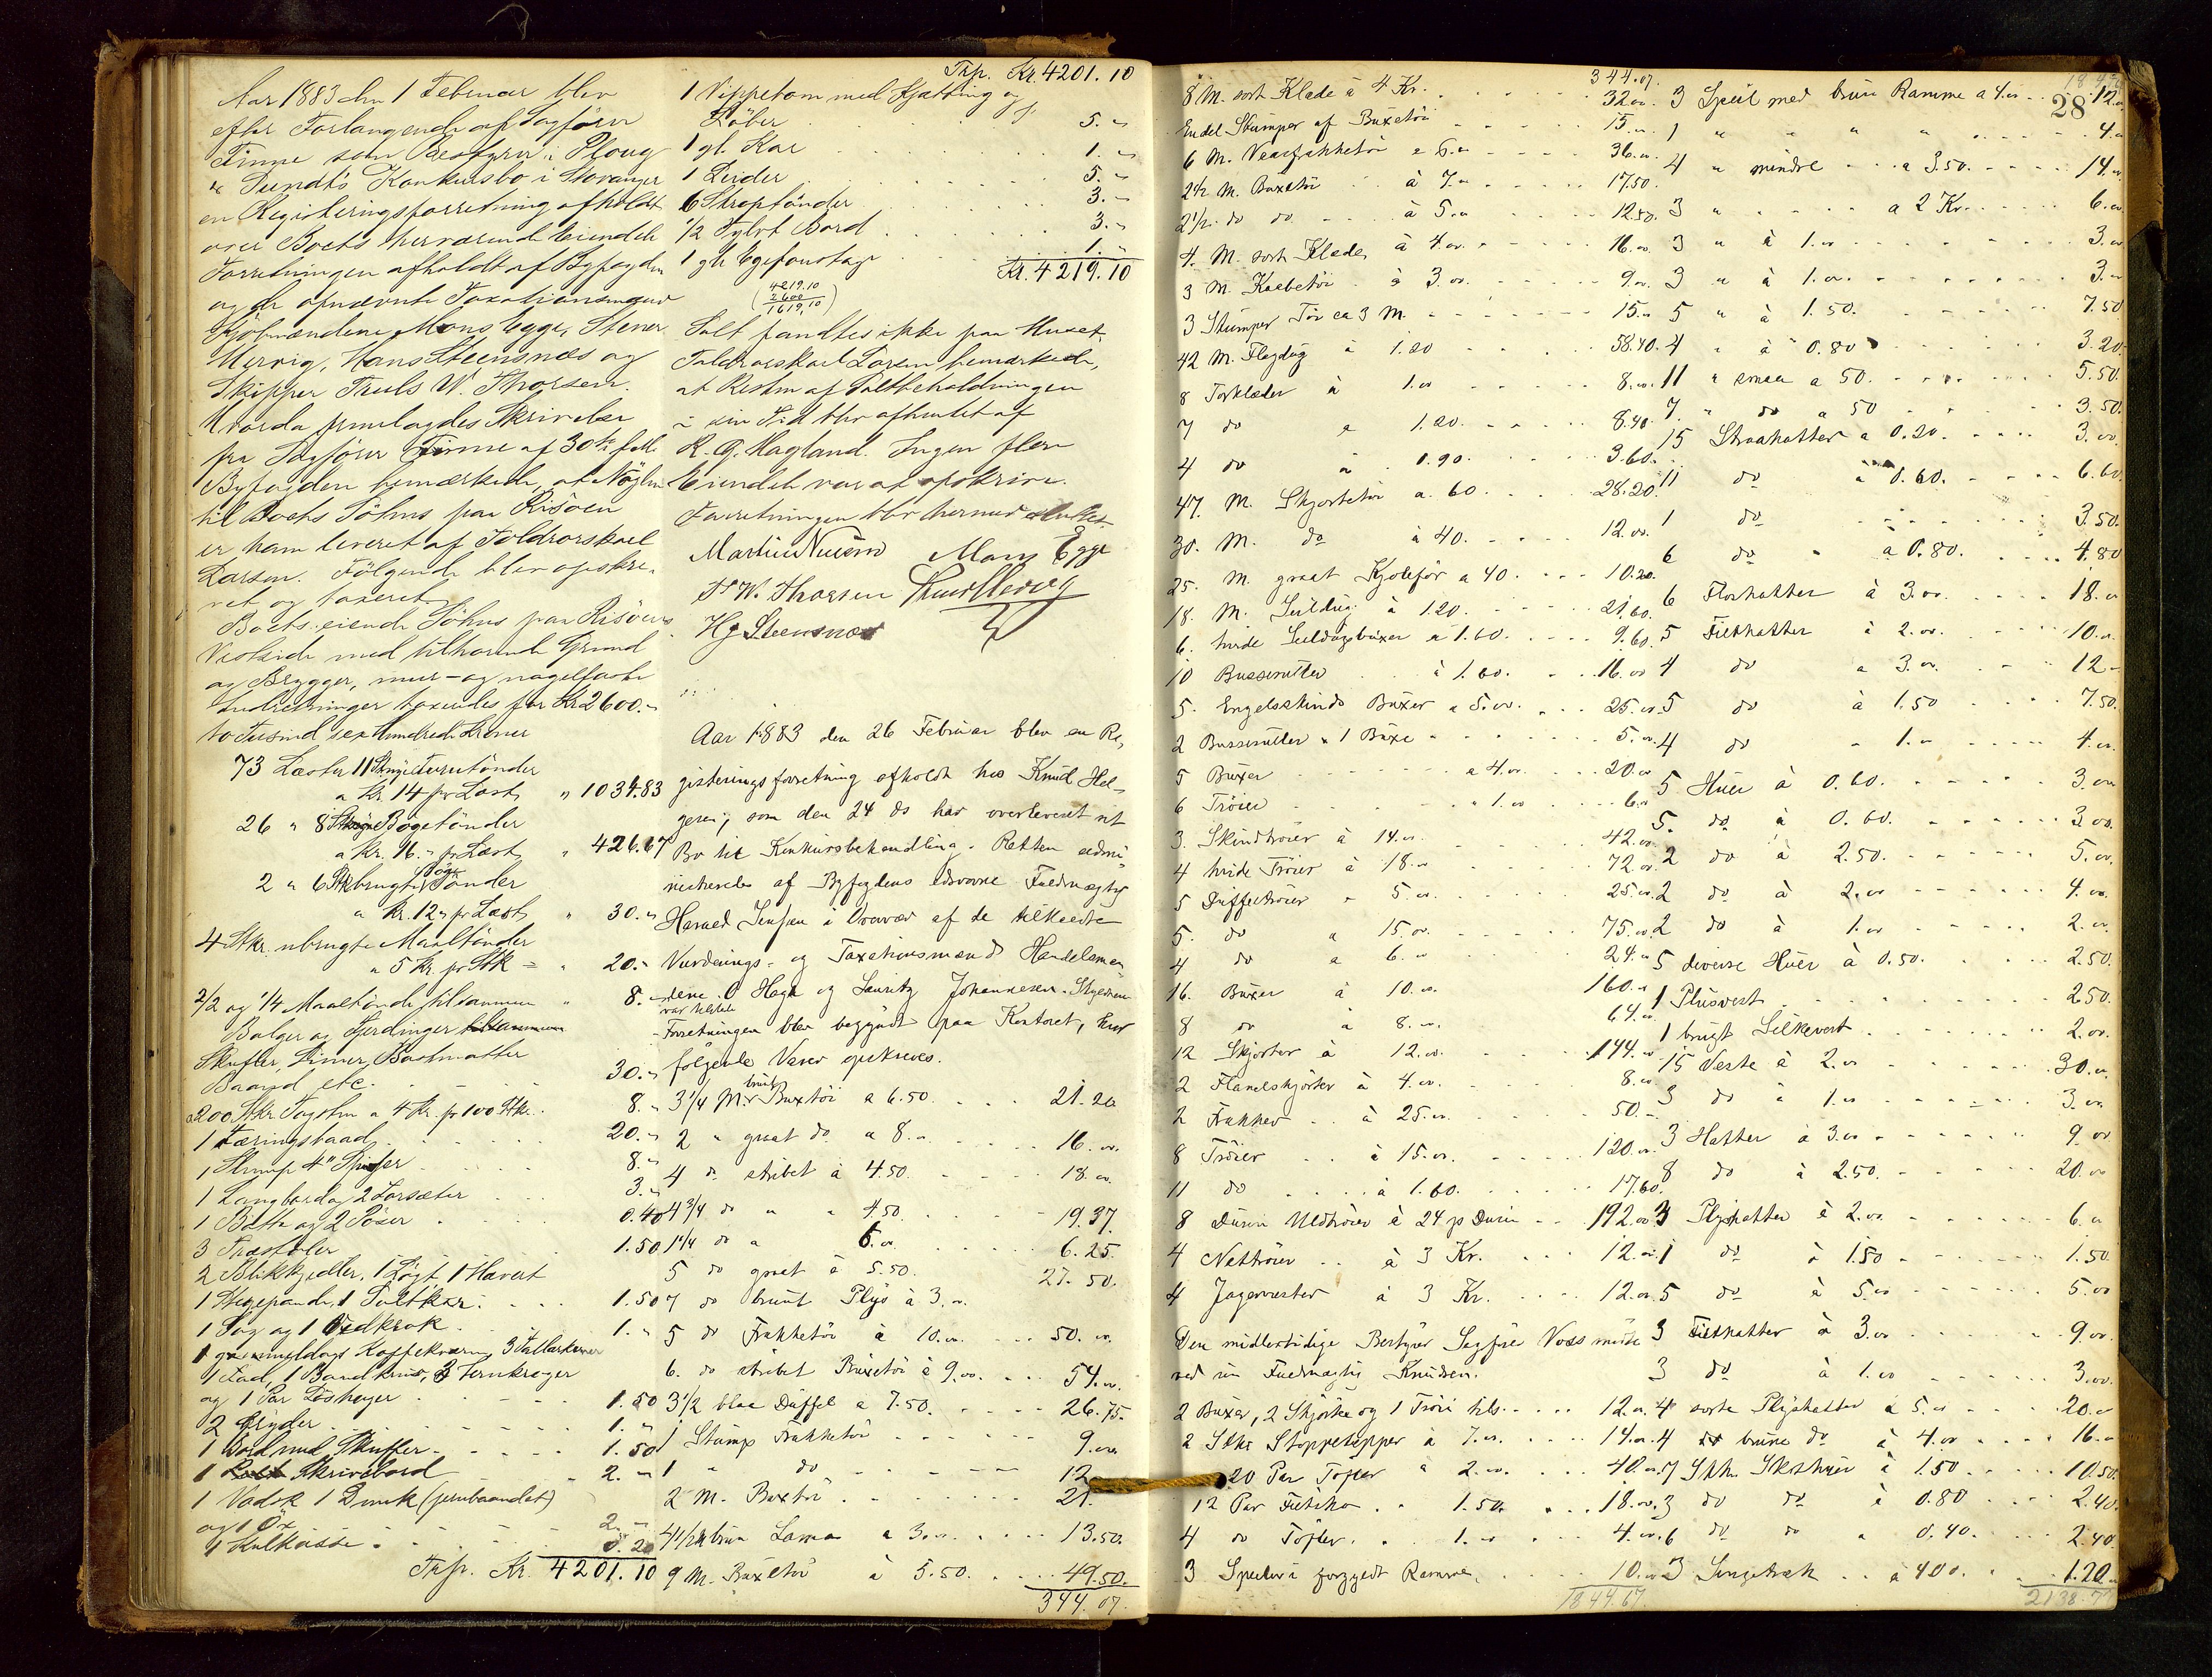 Aar 1883 den 1 Februar blev
efter Forlangende af Sagfører
Finne som Bestyrer i Ploug
& Sundt's Konkursbo i Stavanger
en Registeringsforretning afholdt
over Boets herværende Eiendele
Forretningen afholdt af Byfogden
og de opnævnte Taxationsmænd
Kjøbmændene Mons Egge, Stener
Mervig, Hans Steensnæs og
Skipper Truls W. Thorsen.
Hvorda fremlagdes Skrivelse
fra Sagfører Finne af 30te f. M.
Byfogden bemærkede, at Nøglen
til Boets Søhus paa Risøen
er ham leveret af Toldrorskarl
Larsen. Følgende blev opskre-
vet og taxeret
Boets eiende Søhus paa Risøens
Vestside med tilhørende Grund
og Brygger, mur- og nagelfaste
Indretninger taxeredes for Kr 2600.-
to Tusind sex Hundrede Kroner
73 Læster 11 Stk nye Furutønder
a Kr. 14 pr Læst " 1034.83
26 " 8 Stk nye Bøgetønder
a Kr. 16.- pr Læst " 426.67
2 " 6 Stk brugte Bøge Tønder
a Kr. 12 " pr Læst " 30.-
4 Stkr. ubrugte Maaltønder
a 5 Kr. pr Stk = " 20.-
2/2 og 1/4 Maaltønde tilsammen " 8.-
Balger og Fjerdinger
Skufler, Limer, Bastmatter
Baand etc. 30.-
200 Stkr. Tagsten a 4 Kr. pr 100 Stk. 8.-
1 Færingsbaad 20.-
1 Stump 4" 8.-
1 Langbord og 2 Forsæter 3.-
1 Bøtte og 2 Pøser 0.40
3 Træstoler 1.50
2 Blikkjedler, 1 Løgt, 1 Havert
1 Stegepande, 1 Saltkar 1.50
1 Sag og 1 Vedkrak 1.-
1 gammeldags Kaffekværn, 3 Tallerkener
1 Fad, 1 Vandkrus, 3 Jernkroger
og 1 Par Løsheger 1.50
2 Gryder 1.-
1 Bord med Skuffer 1.50
1 Skrivebord 2.-
1 Vadsæk 1 Dunk (jernbaandet)
og 1 Øx 2.-
1 Kulkasse 0.20
Trsp. Kr. 4201.10
Trsp. Kr. 4201.10
1 Vippetom med Kjætting og
Løber 5.-
1 gl. Kar 1.-
1 Leider 5.-
6 Stroptønder 3.-
1/2 Tylvt Bord 3.-
1 gl. Egefoustage 1.-
Kr. 4219.10
(4219.10
2600
1619,10)
Salt fandtes ikke paa Huset.
Toldrorskarl Larsen bemærkede,
at Resten af Saltbeholdningen
i sin Tid blev afhentet af
R. G. Hagland. Ingen flere
Eiendele var at opskrive.
Forretningen blev hermed sluttet.
Martin Mons Egge
T. W. Thorsen
Hg Steensnæs
Aar 1883 den 26 Februar blev en Re-
gisteringsforretning afholdt hos Knud Hel-
gesen, som den 24 ds har overleveret sit
Bo til Konkursbehandling. Retten admi-
nistreredes af Byfogdens edsvorne Fuldmægtig
Harald Jensen i Overvær af de tilkaldte
Vurderings- og Taxationsmænd Handelsmæn-
dene O Hagh og Lauritz Johannesen. Skyldneren
var tilstede
Forretningen blev begyndt paa Kontoret, hvor
følgende Varer opskreves.
3 1/4 M. brunt Buxtøi a 6.50. 21.20
2 " graat do a 8.- 16.00.
4 do stribet à 4.50. 18.00.
4 3/4 do " " 4.50 19.37.
1 1/4 do a 5.00. 6.25.
5 do graat à 5.50. 27.50.
7 do brunt Plys à 3.00.
5 do Frakketøi à 10.00. 50.00.
6. do stribet Buxetøi à 9.00. 54.00.
3 1/2 blaa Düffel a 7.50. 26.75.
1 Stump Frakketøi 9.00
1 " do 12
2 M. Buxtøi 21.
4 1/2 M brun Lama a 3.00. 13.50.
9 M. Buxetøi à 5.50. 49.50.
344.07.
344.07.
8 M. sort Klæde à 4 Kr. 32.00.
Endel Stumper af Buxetøi 15.00.
6 M. Vaarfrakketøi a 6.00 36.00.
2 1/2 M. Buxetøi à 7.00 17.50.
2 1/2 do do à 5.00 12.50.
4. M. sort Klæde à 4.00. 16.00.
3 M. Kaabetøi à 3.00. 9.00.
3 Stumper Tøi ca 3 M. 15.00
42 M. Flagdug à 1.20 58.40.
8 Torklæder à 1.00 8.00.
7 do a 1.20. 8.40.
4 do à 0.90. 3.60.
47. M. Skjortetøi a. 60. 28.20.
30. M. do à 40. 12.00.
25. M. graat Kjolefór a 40. 10.20.
18. M. Seildug à 1.20. 21.60.
6. hvide Seildugsbuxer a 1.60. 9.60.
10 Busseruller à 1.60. 16.00
5. Engelskinds Buxer a 5.00. 25.00.
2 Busseruller & 1 Buxe 5.00.
5 Buxer a 4.00. 20.00
6 Trøier " 1.00 6.00
3. Skindtrøier à 14.00. 42.00.
4 hvide Trøier à 18.00 72.00.
5 Düffeltrøier " 5.00. 25.00.
5. do a 15.00. 75.00.
4 do a 6.00 24.00
16. Buxer à 10.00. 160.00
8 do à 8.00. 64.00
12 Skjorter à 12.00. 144.00
2 Flanelskjorter à 4.00. 8.00
2 Frakker à 25.00. 50.-
8 Trøier à 15.00. 120.00.
11 do à 1.60. 17.60.
8 Dusin Uldtrøier à 24 pr Dusin 192.00
4 Nettrøier à 3 Kr. 12.00.
4 Jagervester à 3 Kr. 12.00.
Den midlertidige Bestyrer Sagfører Voss mødte
ved sin Fuldmægtig Knudsen.
2 Buxer, 2 Skjorter og 1 Trøie tils. 12.00.
2 Stkr Stoppetepper à 7.00. 14.00.
20 Par Tøfler a 2.00. 40.00.
12 Par Filtsko " 1.50. 18.00.
4 do Tøfler. 1.00 4.00.
3 Speiler i forgyldt Ramme. 10.00
1844.67.
28
3 Speil med brun Ramme a 4.00 12.00
1 " " " " 4.00
4 " mindre a 3.50. 14.00.
3 " a 2 Kr. 6.00.
3 " à 1.00 3.00
3 " à 1.00. 3.00
5 " à 1.50. 7.50
4 " à 0.80 3.20.
11 " smaa a 50. 5.50.
7. " do a 50 3.50.
15 Straahatter a 0.20. 3.00.
11 do à 0.60. 6.60
1 do 3.50.
6 do a 0.80. 4.80
6 Floshatter à 3.00. 18.00
5 Filthatter à 2.00. 10.00.
4 do a 3.00. 12-
5 do à 1.50 7.50.
4 do à 1.00 4.00.
5 Huer à 0.60. 3.00
5. do à 0.60. 3.00.
2 do à 2.50. 5.00.
2 do à 2.00 4.00.
2 do à 1.00 2.00.
5 diverse Huer à 0.50. 2.50.
1 Plüsvest 2.50.
1 brugt Silkevest 2.00.
15 Veste à 2.00 30.00.
3 do à 1.00 3.00.
3 Hatter à 3.00 9.00
8 do à 2.50. 20.00
3 Plyshatter à 2.00. 6.00
1 do à 1.50 1.50.
5 do à 5.00 5.00
3 Filthatter à 3.00 9.00.
3 do à 1.00 3.00.
4 sorte Plyshatter à 5.00 20.00
4 brune do à 4.00 16.00
7 Stkr. Skothuer à 1.50. 10.50.
3 do do à 0.80 2.40.
6 do do a 0.40. 2.40.
3 à 400. 1.20
2138.77